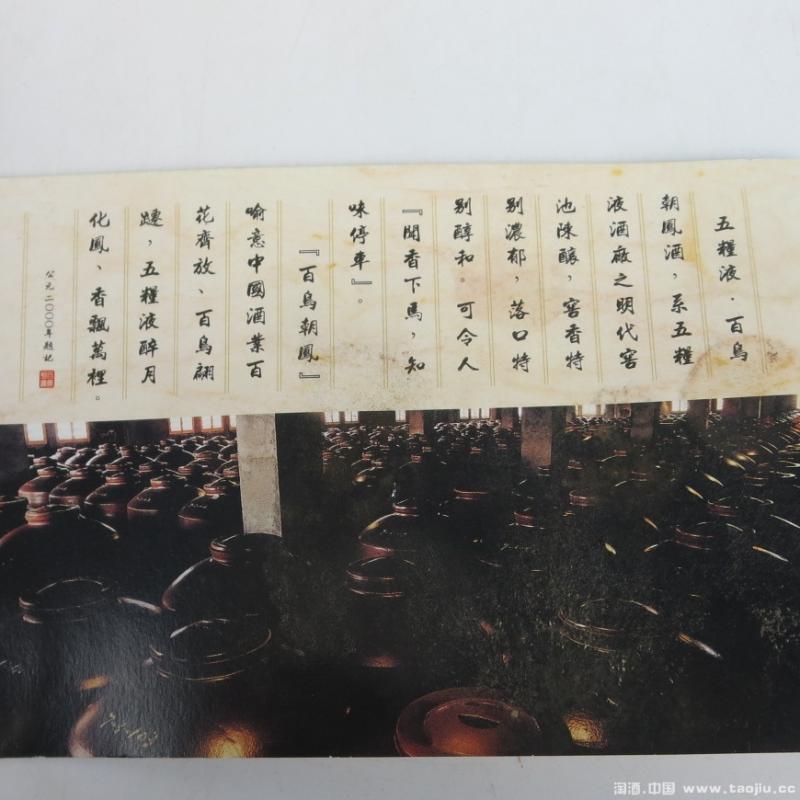 五糧液·百鳥
朝鳳酒，系五糧
液酒廠之明代窖
池陳釀，窖香特
别濃郁，落口特
别醇和。可令人
『聞香下馬，知
味停車』。
『百鳥朝鳳』
喻意中國酒業百
花齊放、百鳥翩
躚，五糧液醉月
化鳳、香飄萬裡。
公元二〇〇〇年題記
7-1-103
淘酒.中国 www.taojiu.cc